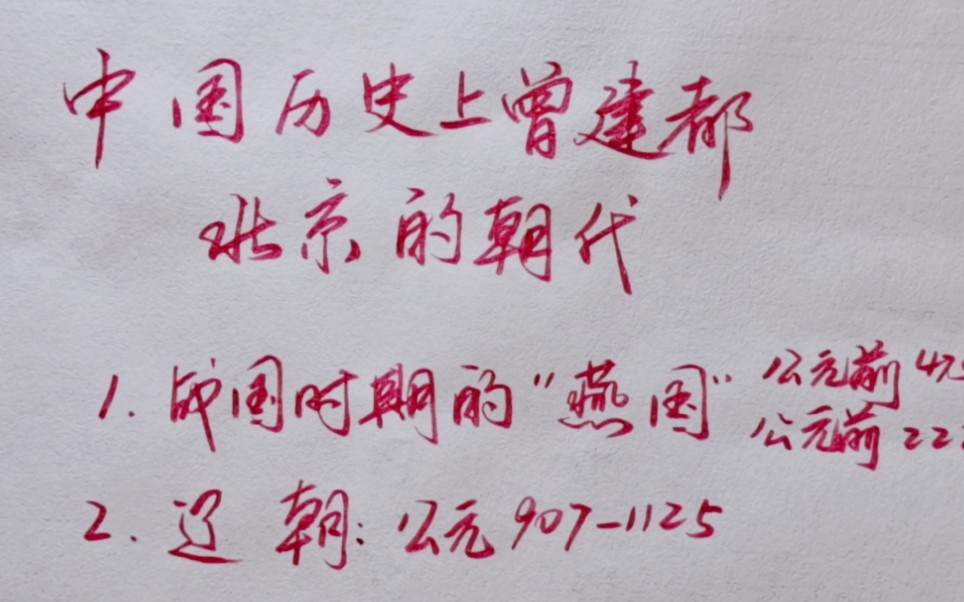 中国历史上曾建都
北京的朝代
1. 战国时期的“燕国”
公元前 47
公元前 22
2. 辽 朝: 公元 907-1125